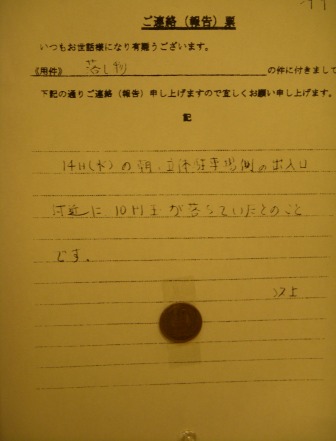 ご連絡（報告）票
いつもお世話様になり有難うございます。
《用件》 落し物 の件に付きまして
下記の通りご連絡（報告）申し上げますので宜しくお願い申し上げます。
記
14日(水)の朝、立体駐車場側の出入口
付近に10円玉が落ちていたとのこと
です。
以上